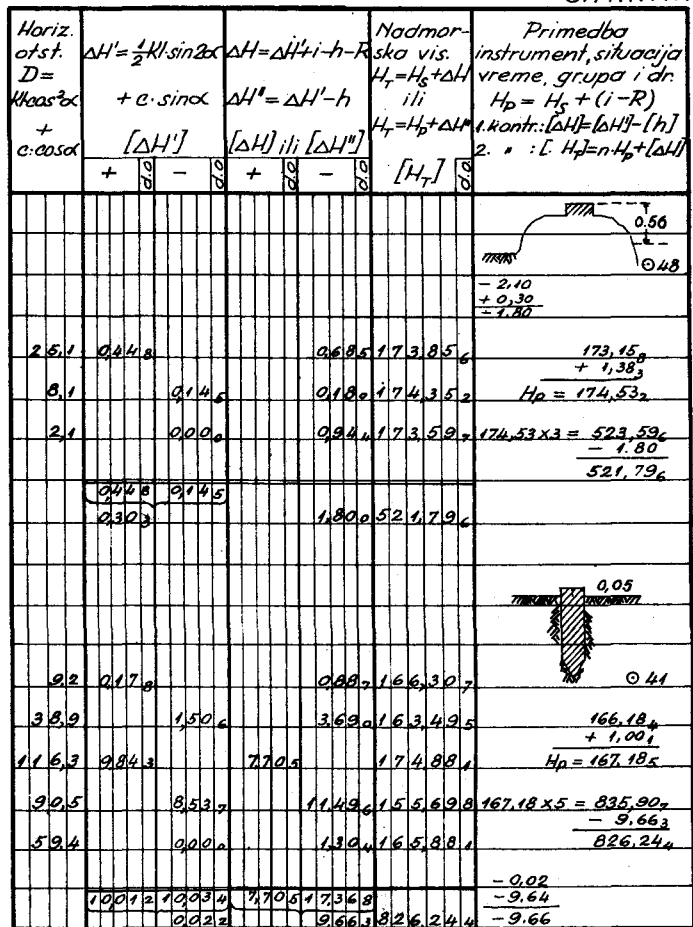 Horiz. otst. D= kl·cos²α + c·cosα
ΔH'=½kl·sin2α + c·sinα [ΔH']
ΔH=ΔH'+i-h-R ΔH"=ΔH'-h [ΔH] ili [ΔH"]
Nadmorska vis. H_T=H_S+ΔH ili H_T=H_P+ΔH" [H_T] d.o
Primedba
instrument, situacija
vreme, grupa i dr.
H_P = H_S + (i-R)
1. kontr.:[ΔH]=[ΔH']-[h]
2. " :[ H_T]=n·H_P+[ΔH]
+ d.o - d.o + d.o - d.o
0.56
⊙48
- 2,10
+ 0,30
- 1.80
25,1 0,448 0,685 173,856 173,158
+ 1,383
8,1 0,145 0,180 174,352 Hp = 174,532
2,1 0,000 0,944 173,597 174,53 x 3 = 523,596
- 1.80
521,796
0,448 0,145
0,303 1,800 521,796
0,05
⊙41
9,2 0,178 0,887 166,307
38,9 1,506 3,690 163,495 166,184
+ 1,001
116,3 9,843 7,705 174,881 Hp = 167,185
90,5 8,537 11,496 155,698 167.18 x 5 = 835,907
- 9.663
59,4 0,000 1,304 165,881 826,244
- 0,02
10,012 10,034 7,705 17,368 -9.64
0,022 9,663 826,244 - 9.66